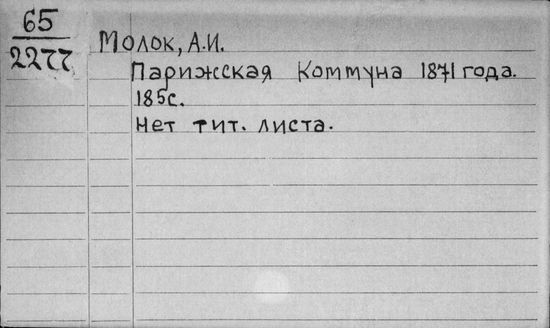 65
2277
Молок, А.И.
Парижская Коммуна 1871 года.
185с.
Нет тит. листа.